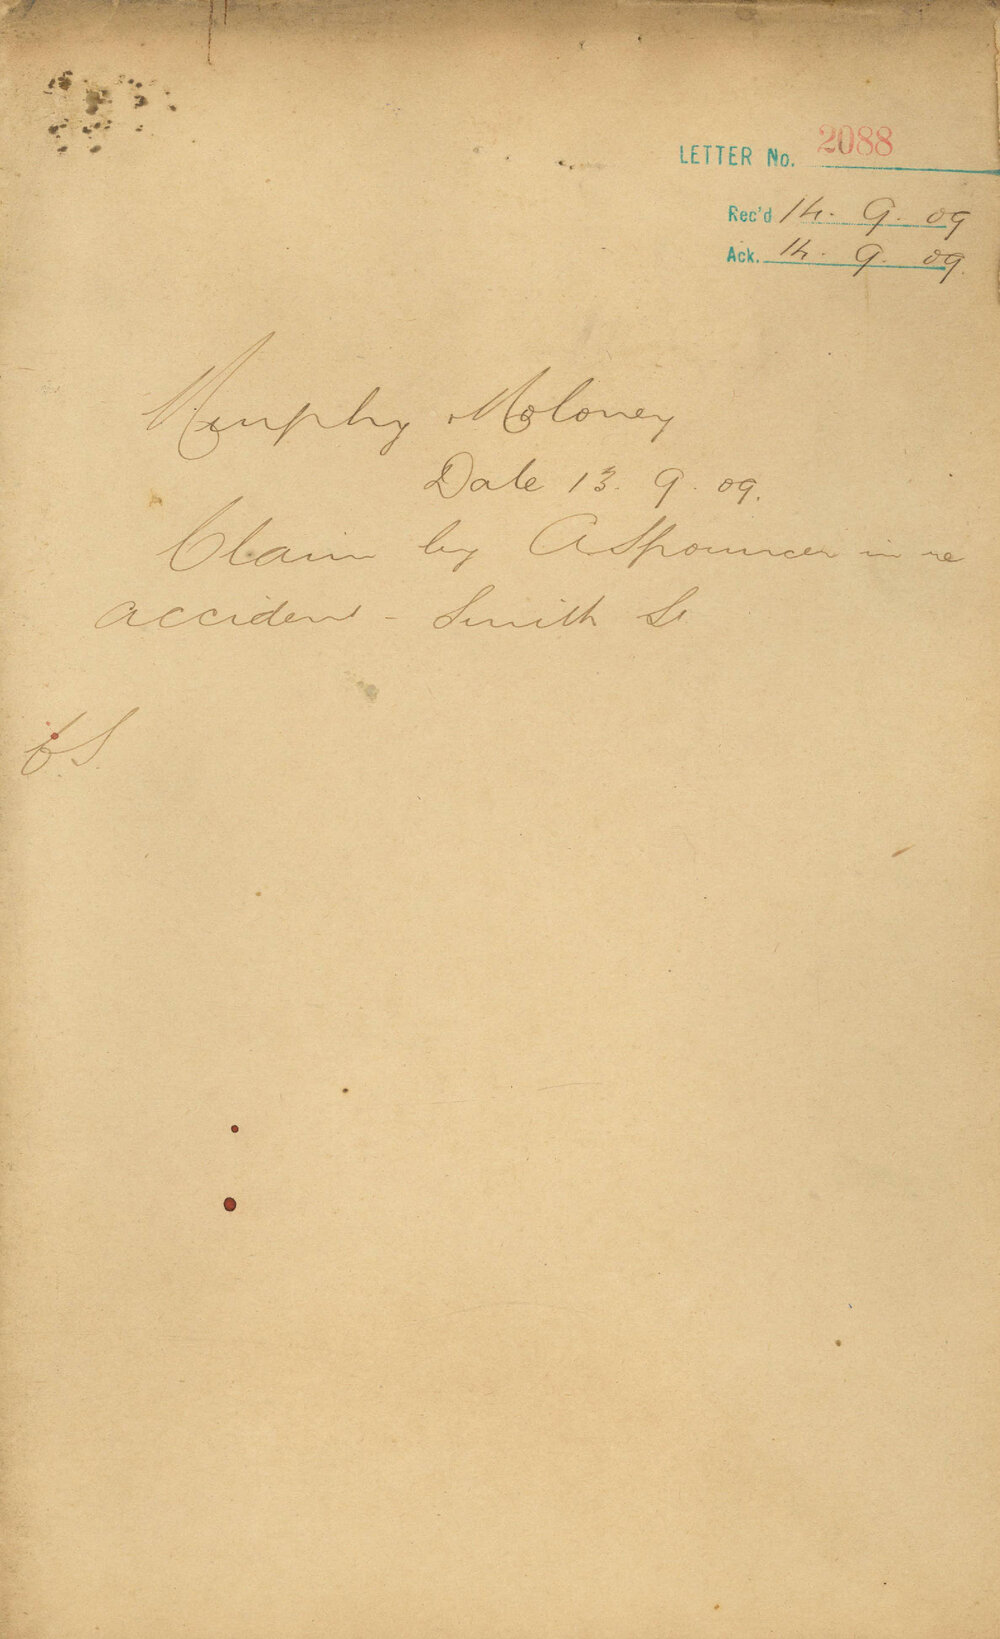 LETTER No. 2088
Rec'd 14. 9. 09
Ack. 14. 9. 09.
Murphy Moloney
Date 13. 9. 09.
Claim by A Spouncer in re
accident - Smith St